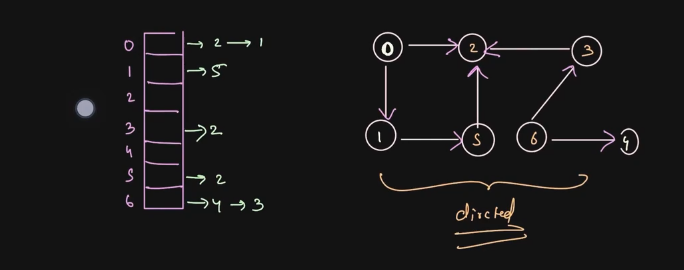 0 → 2 → 1
1 → 5
2
3 → 2
4
5 → 2
6 → 4 → 3
0 2 3
1 5 6 4
dircted